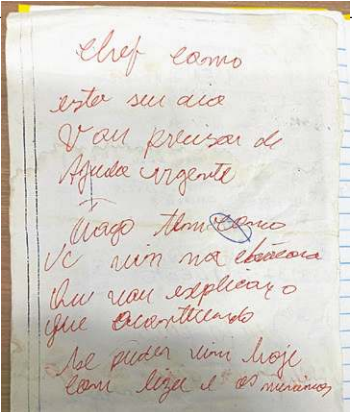 Chef como
esta seu dia
Vou precisar de
Ajuda urgente
Tiago tem como
vc vim na
Que vou explicar o
que acontecendo
se puder vim hoje
com liga e os meninos